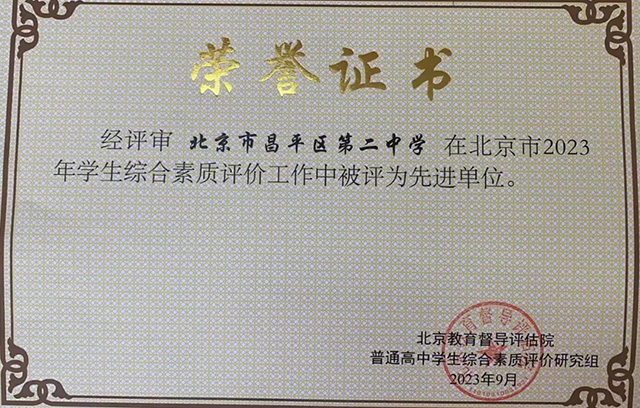 荣誉证书
经评审 北京市昌平区第二中学 在北京市2023
年学生综合素质评价工作中被评为先进单位。
北京教育督导评估院
普通高中学生综合素质评价研究组
2023年9月